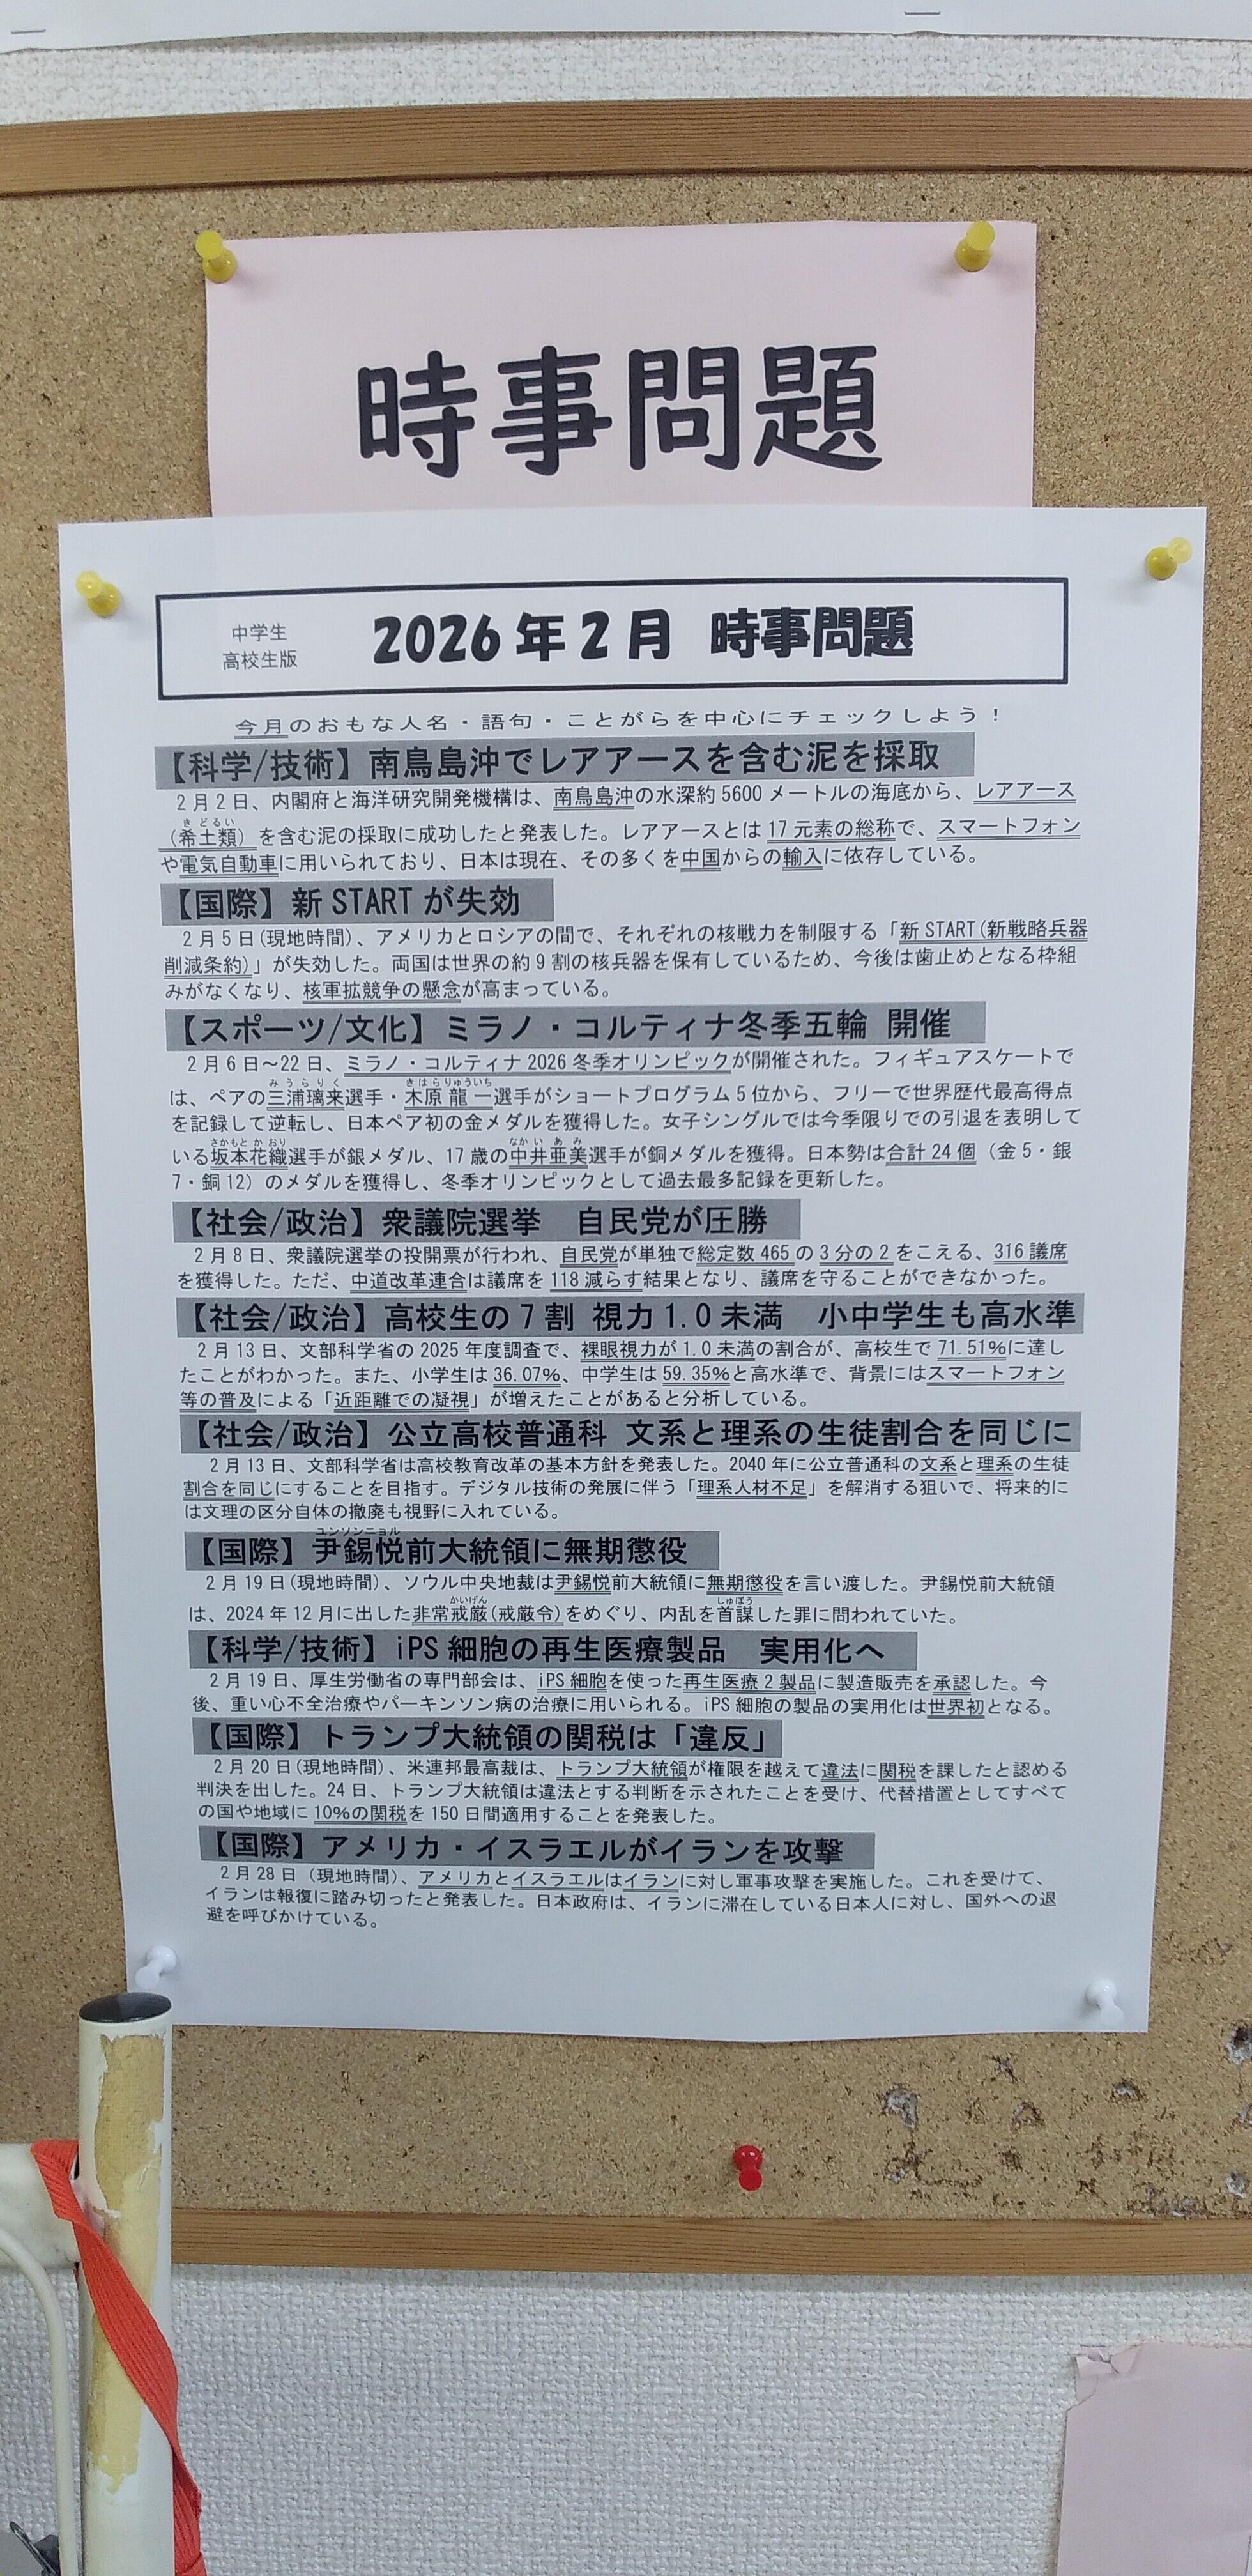 時事問題
中学生
高校生版
2026年2月 時事問題
今月のおもな人名・語句・ことがらを中心にチェックしよう！
【科学/技術】南鳥島沖でレアアースを含む泥を採取
2月2日、内閣府と海洋研究開発機構は、南鳥島沖の水深約5600メートルの海底から、レアアース
きどるい
（希土類）を含む泥の採取に成功したと発表した。レアアースとは17元素の総称で、スマートフォン
や電気自動車に用いられており、日本は現在、その多くを中国からの輸入に依存している。
【国際】新STARTが失効
2月5日(現地時間)、アメリカとロシアの間で、それぞれの核戦力を制限する「新START(新戦略兵器
削減条約)」が失効した。両国は世界の約9割の核兵器を保有しているため、今後は歯止めとなる枠組
みがなくなり、核軍拡競争の懸念が高まっている。
【スポーツ/文化】ミラノ・コルティナ冬季五輪 開催
2月6日～22日、ミラノ・コルティナ2026冬季オリンピックが開催された。フィギュアスケートで
みうらりく きはらりゅういち
は、ペアの三浦璃来選手・木原龍一選手がショートプログラム5位から、フリーで世界歴代最高得点
を記録して逆転し、日本ペア初の金メダルを獲得した。女子シングルでは今季限りでの引退を表明して
さかもとかおり なかいあみ
いる坂本花織選手が銀メダル、17歳の中井亜美選手が銅メダルを獲得。日本勢は合計24個（金5・銀
7・銅12）のメダルを獲得し、冬季オリンピックとして過去最多記録を更新した。
【社会/政治】衆議院選挙　自民党が圧勝
2月8日、衆議院選挙の投開票が行われ、自民党が単独で総定数465の3分の2をこえる、316議席
を獲得した。ただ、中道改革連合は議席を118減らす結果となり、議席を守ることができなかった。
【社会/政治】高校生の7割 視力1.0未満　小中学生も高水準
2月13日、文部科学省の2025年度調査で、裸眼視力が1.0未満の割合が、高校生で71.51%に達し
たことがわかった。また、小学生は36.07%、中学生は59.35%と高水準で、背景にはスマートフォン
等の普及による「近距離での凝視」が増えたことがあると分析している。
【社会/政治】公立高校普通科 文系と理系の生徒割合を同じに
2月13日、文部科学省は高校教育改革の基本方針を発表した。2040年に公立普通科の文系と理系の生徒
割合を同じにすることを目指す。デジタル技術の発展に伴う「理系人材不足」を解消する狙いで、将来的に
は文理の区分自体の撤廃も視野に入れている。
ユンソンニョル
【国際】尹錫悦前大統領に無期懲役
2月19日(現地時間)、ソウル中央地裁は尹錫悦前大統領に無期懲役を言い渡した。尹錫悦前大統領
かいげん しゅぼう
は、2024年12月に出した非常戒厳(戒厳令)をめぐり、内乱を首謀した罪に問われていた。
【科学/技術】iPS細胞の再生医療製品　実用化へ
2月19日、厚生労働省の専門部会は、iPS細胞を使った再生医療2製品に製造販売を承認した。今
後、重い心不全治療やパーキンソン病の治療に用いられる。iPS細胞の製品の実用化は世界初となる。
【国際】トランプ大統領の関税は「違反」
2月20日(現地時間)、米連邦最高裁は、トランプ大統領が権限を越えて違法に関税を課したと認める
判決を出した。24日、トランプ大統領は違法とする判断を示されたことを受け、代替措置としてすべて
の国や地域に10%の関税を150日間適用することを発表した。
【国際】アメリカ・イスラエルがイランを攻撃
2月28日（現地時間）、アメリカとイスラエルはイランに対し軍事攻撃を実施した。これを受けて、
イランは報復に踏み切ったと発表した。日本政府は、イランに滞在している日本人に対し、国外への退
避を呼びかけている。